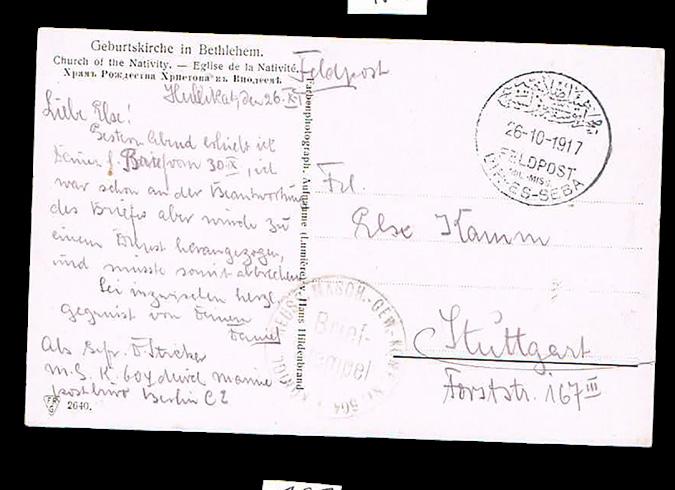 Geburtskirche in Bethlehem.
Church of the Nativity. — Eglise de la Nativité.
Храмъ Рождества Христова въ Виѳлеемѣ.
Feldpost
den 26. XI
Liebe Else!
Gestern Abend erhielt ich
Deinen l. Brief vom 30 IX, ich
war schon an der Beantwortung
des Briefes aber wurde zu
einem Dienst herangezogen,
und musste somit abbrechen
Sei inzwischen herzl.
gegrüsst von Deinem
Daniel
Als Gefr. D. Stricker
M.G.K. 604 durch Marine
postbüro Berlin C 2
2640.
Farbenphotograph. Aufnahme (Lumière) v. Hans Hildenbrand
26-10-1917
FELDPOST
MIL. MISS.
BIR-ES-SEBA
Frl.
Else Kamm
Stuttgart
Forststr. 167 III
MASCH.-GEW.
Nr. 604
Brief-
stempel